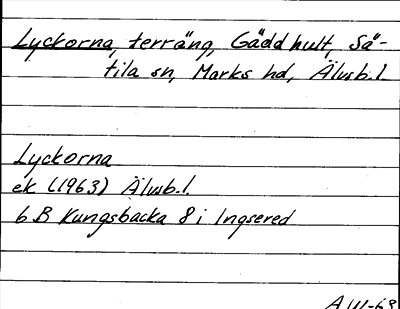 Lyckorna, terräng, Gäddhult, Sä-
tila sn, Marks hd, Älvsb.l.
Lyckorna
ek (1963) Älvsb.l.
6B Kungsbacka 8i Ingsered